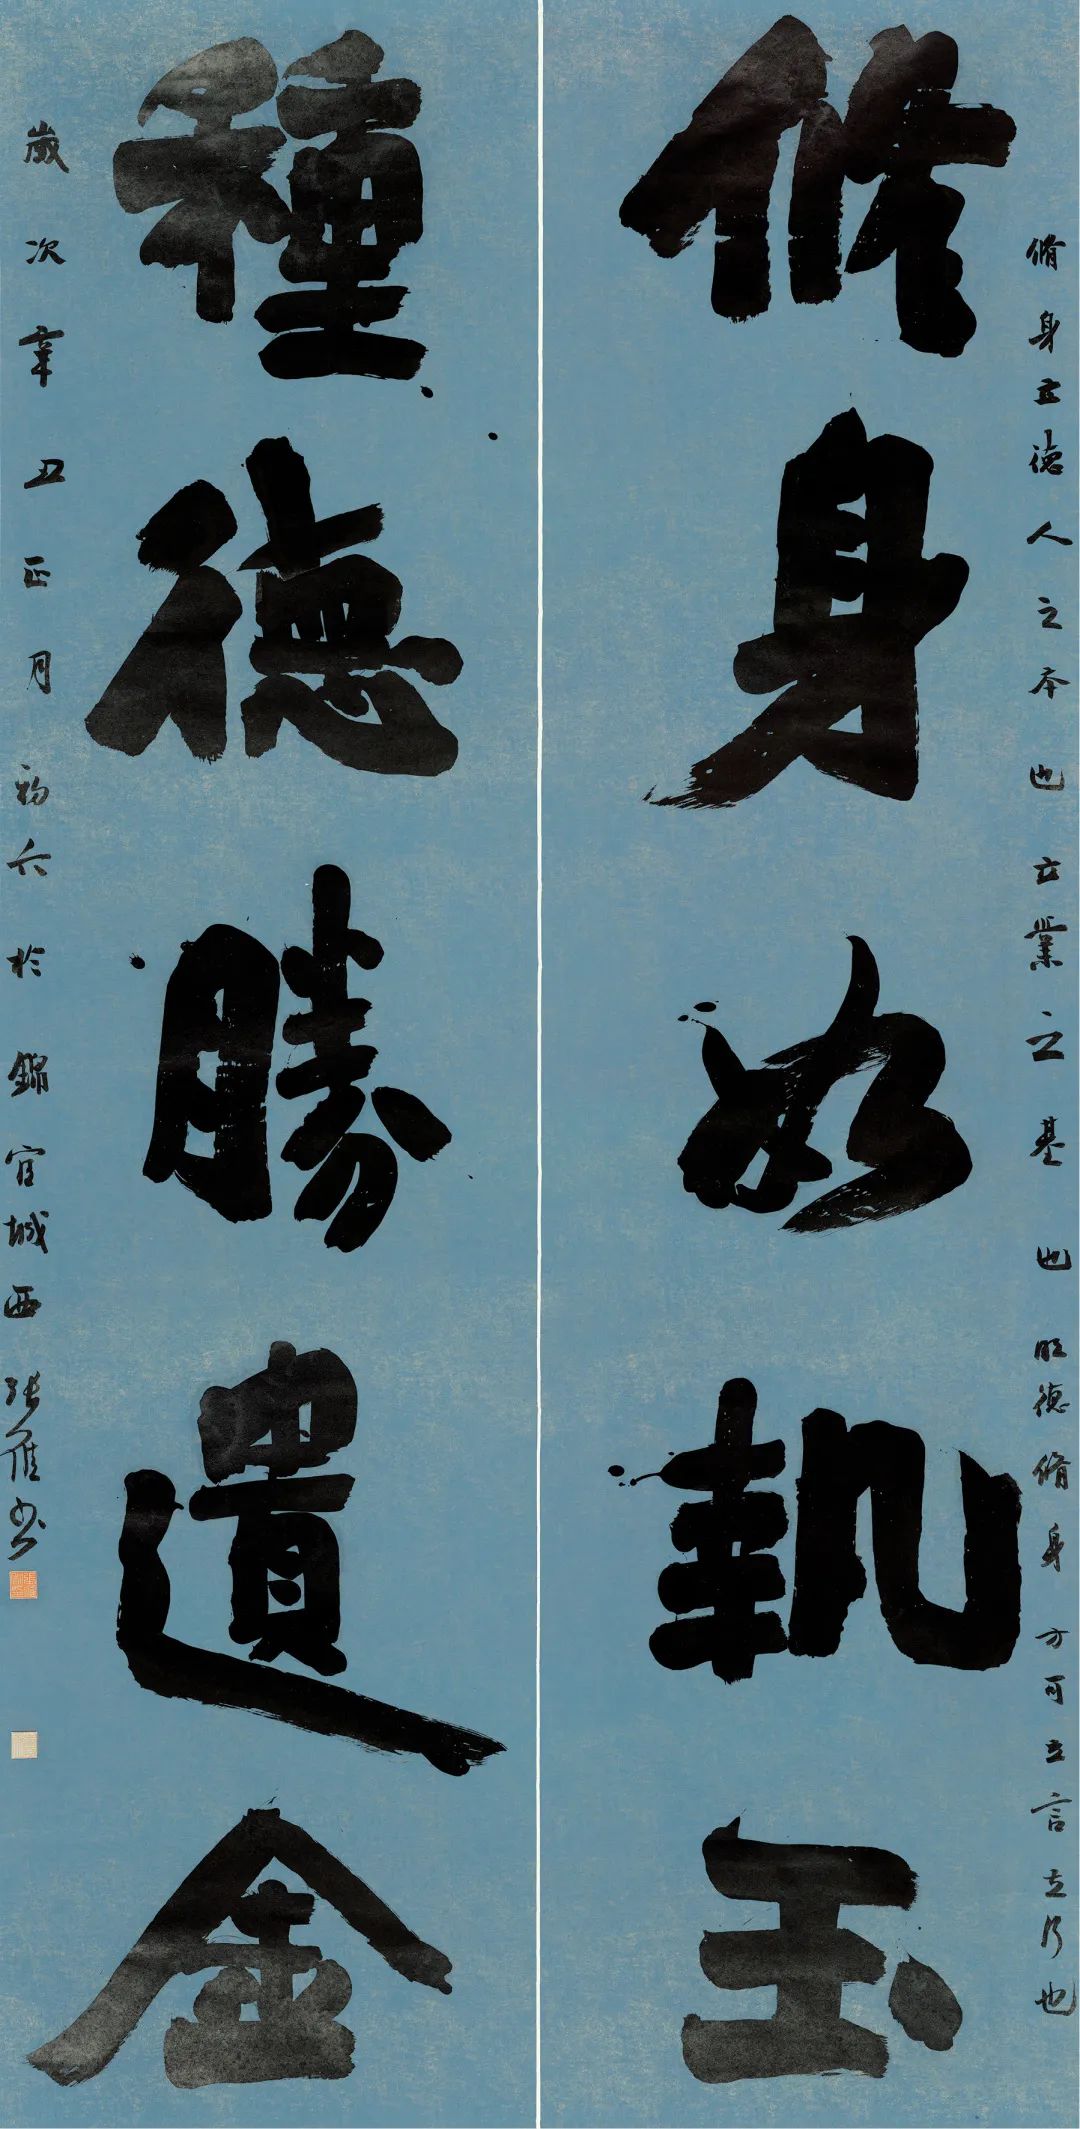 脩身立德人之本也立業之基也明德脩身方可立言立行也
修身如執玉
種德勝遺金
歲次辛丑正月初六於錦官城西張雁書